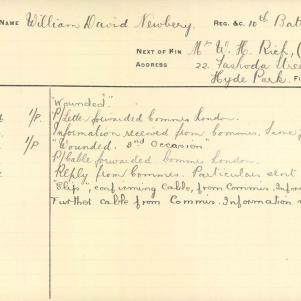 NAME William David Newbery. REG. &C. 10th Bat
NEXT OF KIN Mrs W. H. Rich, (
ADDRESS 22. Fashoda Stree
Hyde Park. FI
"Wounded".
1/P. P/Lette forwarded Commrs London.
Information received from Commrs. Same
1/P "Wounded. 2nd Occasion"
P/Cable forwarded Commrs London.
Reply from Commrs. Particulars sent
"Slip", confirming cable, from Commrs. Infor
Further cable from Commrs. Information